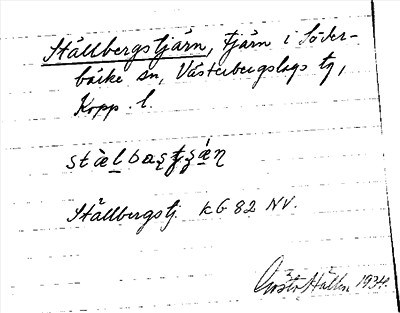 Ställbergstjärn, tjärn i Söder-
bärke sn, Västerbergslags tg,
Kopp. l.
Ställbergstj. kG 82 NV.
Gösta Hallén 1934.